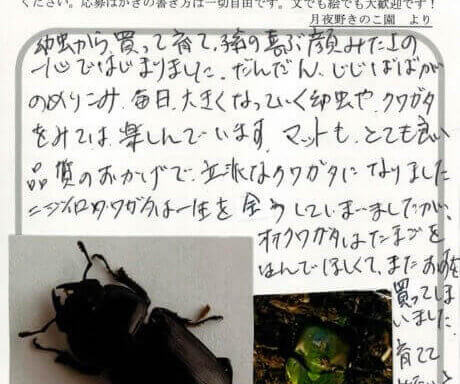 ください。応募はがきの書き方は一切自由です。文でも絵でも大歓迎です！
月夜野きのこ園　より
幼虫から買って育て、孫の喜ぶ顔みたさの
一心ではじまりました。だんだん、じじばばが
のめりこみ、毎日、大きくなっていく幼虫や、クワガタ
をみては、楽しんでいます。マットも、とても良い
品質のおかげで、立派なクワガタになりました
ニジイロクワガタは一生を全うしてしまいましたが、
オオクワガタはたまごを
うんでほしくて、また
買ってしま
いました。
育てて